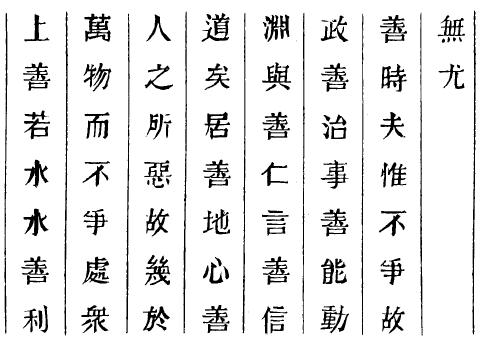 上善若水水善利
萬物而不爭處衆
人之所惡故幾於
道矣居善地心善
淵與善仁言善信
政善治事善能動
善時夫惟不爭故
無尤